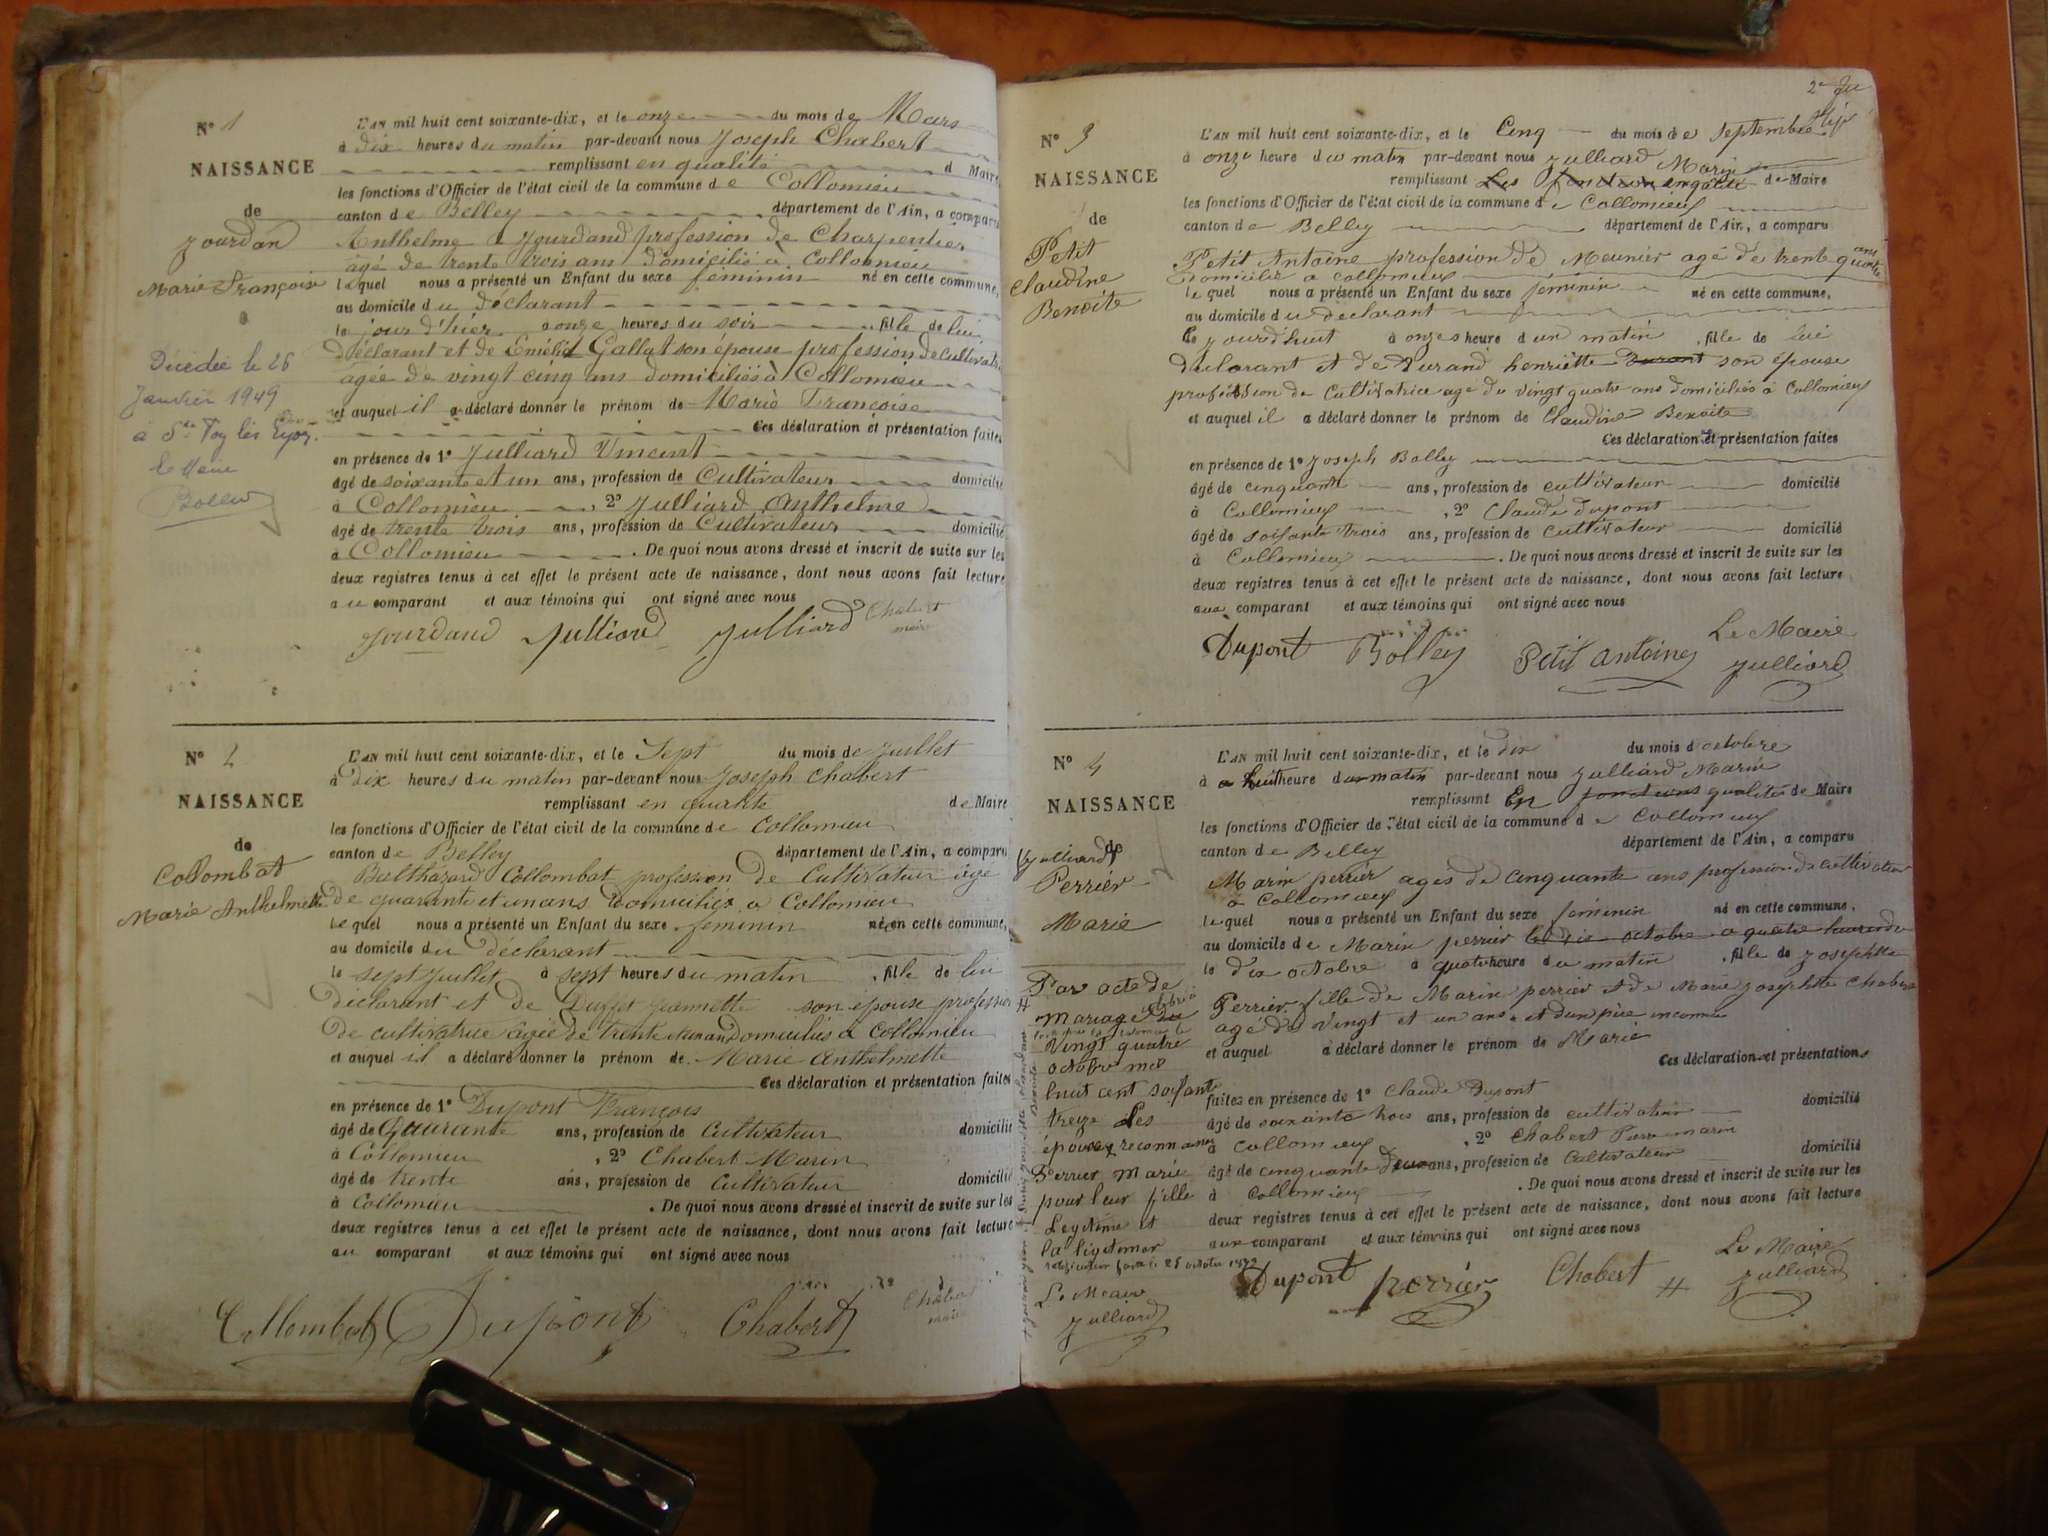 N° 1
NAISSANCE
de
Jourdan
Marie Françoise
Décédée le 26
Janvier 1949
à Ste Foy lès Lyon
le Maire
L'AN mil huit cent soixante-dix, et le onze du mois de Mars
à dix heures du matin par-devant nous Joseph Chabert
remplissant en qualité d Maire
les fonctions d'Officier de l'état civil de la commune de Collomieu
canton de Belley département de l'Ain, a comparu
Anthelme Jourdand profession de Charpentier
âgé de trente trois ans domicilié à Collomieu
lequel nous a présenté un Enfant du sexe féminin né en cette commune,
au domicile du déclarant
le jour d'hier à onze heures du soir, fille de lui
déclarant et de Emélie Gallat son épouse profession de cultivatrice
agée de vingt cinq ans domiciliés à Collomieu
et auquel il a déclaré donner le prénom de Marie Françoise
Ces déclaration et présentation faites
en présence de 1° Julliard Vincent
âgé de soixante et un ans, profession de Cultivateur domicilié
à Collomieu, 2° Julliard Anthelme
âgé de trente trois ans, profession de Cultivateur domicilié
à Collomieu. De quoi nous avons dressé et inscrit de suite sur les
deux registres tenus à cet effet le présent acte de naissance, dont nous avons fait lecture
au comparant et aux témoins qui ont signé avec nous
Jourdand Julliard Julliard Chabert
maire
N° 2
NAISSANCE
de
Collombat
Marie Anthelmette
L'AN mil huit cent soixante-dix, et le Sept du mois de Juillet
à Dix heures du matin par-devant nous Joseph Chabert
remplissant en qualité de Maire
les fonctions d'Officier de l'état civil de la commune de Collomieu
canton de Belley département de l'Ain, a comparu
Balthazard Collombat profession de Cultivateur âgé
de quarante et un ans Domicilié à Collomieu
lequel nous a présenté un Enfant du sexe féminin né en cette commune,
au domicile du déclarant
le sept Juillet à sept heures du matin, fille de lui
déclarant et de Duffet Jeannette son épouse profession
de cultivatrice agée de trente et un an Domiciliés à Collomieu
et auquel il a déclaré donner le prénom de Marie Anthelmette
Ces déclaration et présentation faites
en présence de 1° Dupont François
âgé de Quarante ans, profession de Cultivateur domicilié
à Collomieu, 2° Chabert Marin
âgé de trente ans, profession de Cultivateur domicilié
à Collomieu. De quoi nous avons dressé et inscrit de suite sur les
deux registres tenus à cet effet le présent acte de naissance, dont nous avons fait lecture
au comparant et aux témoins qui ont signé avec nous
Collombat Dupont Chabert Chabert
maire
N° 3
NAISSANCE
de
Petit
Claudine
Benoite
L'AN mil huit cent soixante-dix, et le Cinq du mois de septembre
à onze heure du matin par-devant nous Julliard Marin
remplissant Les fonction en qualité de Maire
les fonctions d'Officier de l'état civil de la commune de Collomieu
canton de Belley département de l'Ain, a comparu
Petit Antoine profession de Meunier agé de trente quatre ans
domicilié a collomieu
lequel nous a présenté un Enfant du sexe féminin né en cette commune,
au domicile du déclarant
le jourd'huit à onze heure du matin, fille de lui
déclarant et de Durand henriette Durant son épouse
profession de Cultivatrice agé de vingt quatre ans domiciliés à Collomieu
et auquel il a déclaré donner le prénom de Claudine Benoite
Ces déclaration et présentation faites
en présence de 1° Joseph Bolley
âgé de cinquante ans, profession de cultivateur domicilié
à Collomieu, 2° Claude Dupont
âgé de soixante trois ans, profession de cultivateur domicilié
à Collomieu. De quoi nous avons dressé et inscrit de suite sur les
deux registres tenus à cet effet le présent acte de naissance, dont nous avons fait lecture
aux comparant et aux témoins qui ont signé avec nous
Le Maire
Dupont Bolley Petit antoine Julliard
N° 4
NAISSANCE
de
(Julliard)
Perrier
Marie
Par acte de
mariage du
vingt quatre
octobre mil
huit cent soixante
treize Les
époux reconnaisse
Perrier Marie
pour leur fille
Legitime et
la légitimer
Le Maire
Julliard
L'AN mil huit cent soixante-dix, et le dix du mois d octobre
à huit heure du matin par-devant nous Julliard Marin
remplissant En fonctions qualité de Maire
les fonctions d'Officier de l'état civil de la commune de Collomieu
canton de Belley département de l'Ain, a comparu
Marin perrier agés de cinquante ans profession de cultivateur
à Collomieu
lequel nous a présenté un Enfant du sexe féminin né en cette commune,
au domicile de Marin perrier le dix octobre a quatre heure du
le dix octobre à quatre heure du matin, fille de Josephte
Perrier fille de Marin perrier et de Marie Josephte Chabert
agé de vingt et un ans et d'un père inconnu
et auquel a déclaré donner le prénom de Marie
Ces déclaration et présentation
faites en présence de 1° Claude Dupont
âgé de soixante trois ans, profession de cultivateur domicilié
à Collomieu, 2° Chabert Pierre marin
âgé de cinquante deux ans, profession de Cultivateur domicilié
à Collomieu. De quoi nous avons dressé et inscrit de suite sur les
deux registres tenus à cet effet le présent acte de naissance, dont nous avons fait lecture
aux comparant et aux témoins qui ont signé avec nous
Le Maire
Dupont perrier Chabert Julliard